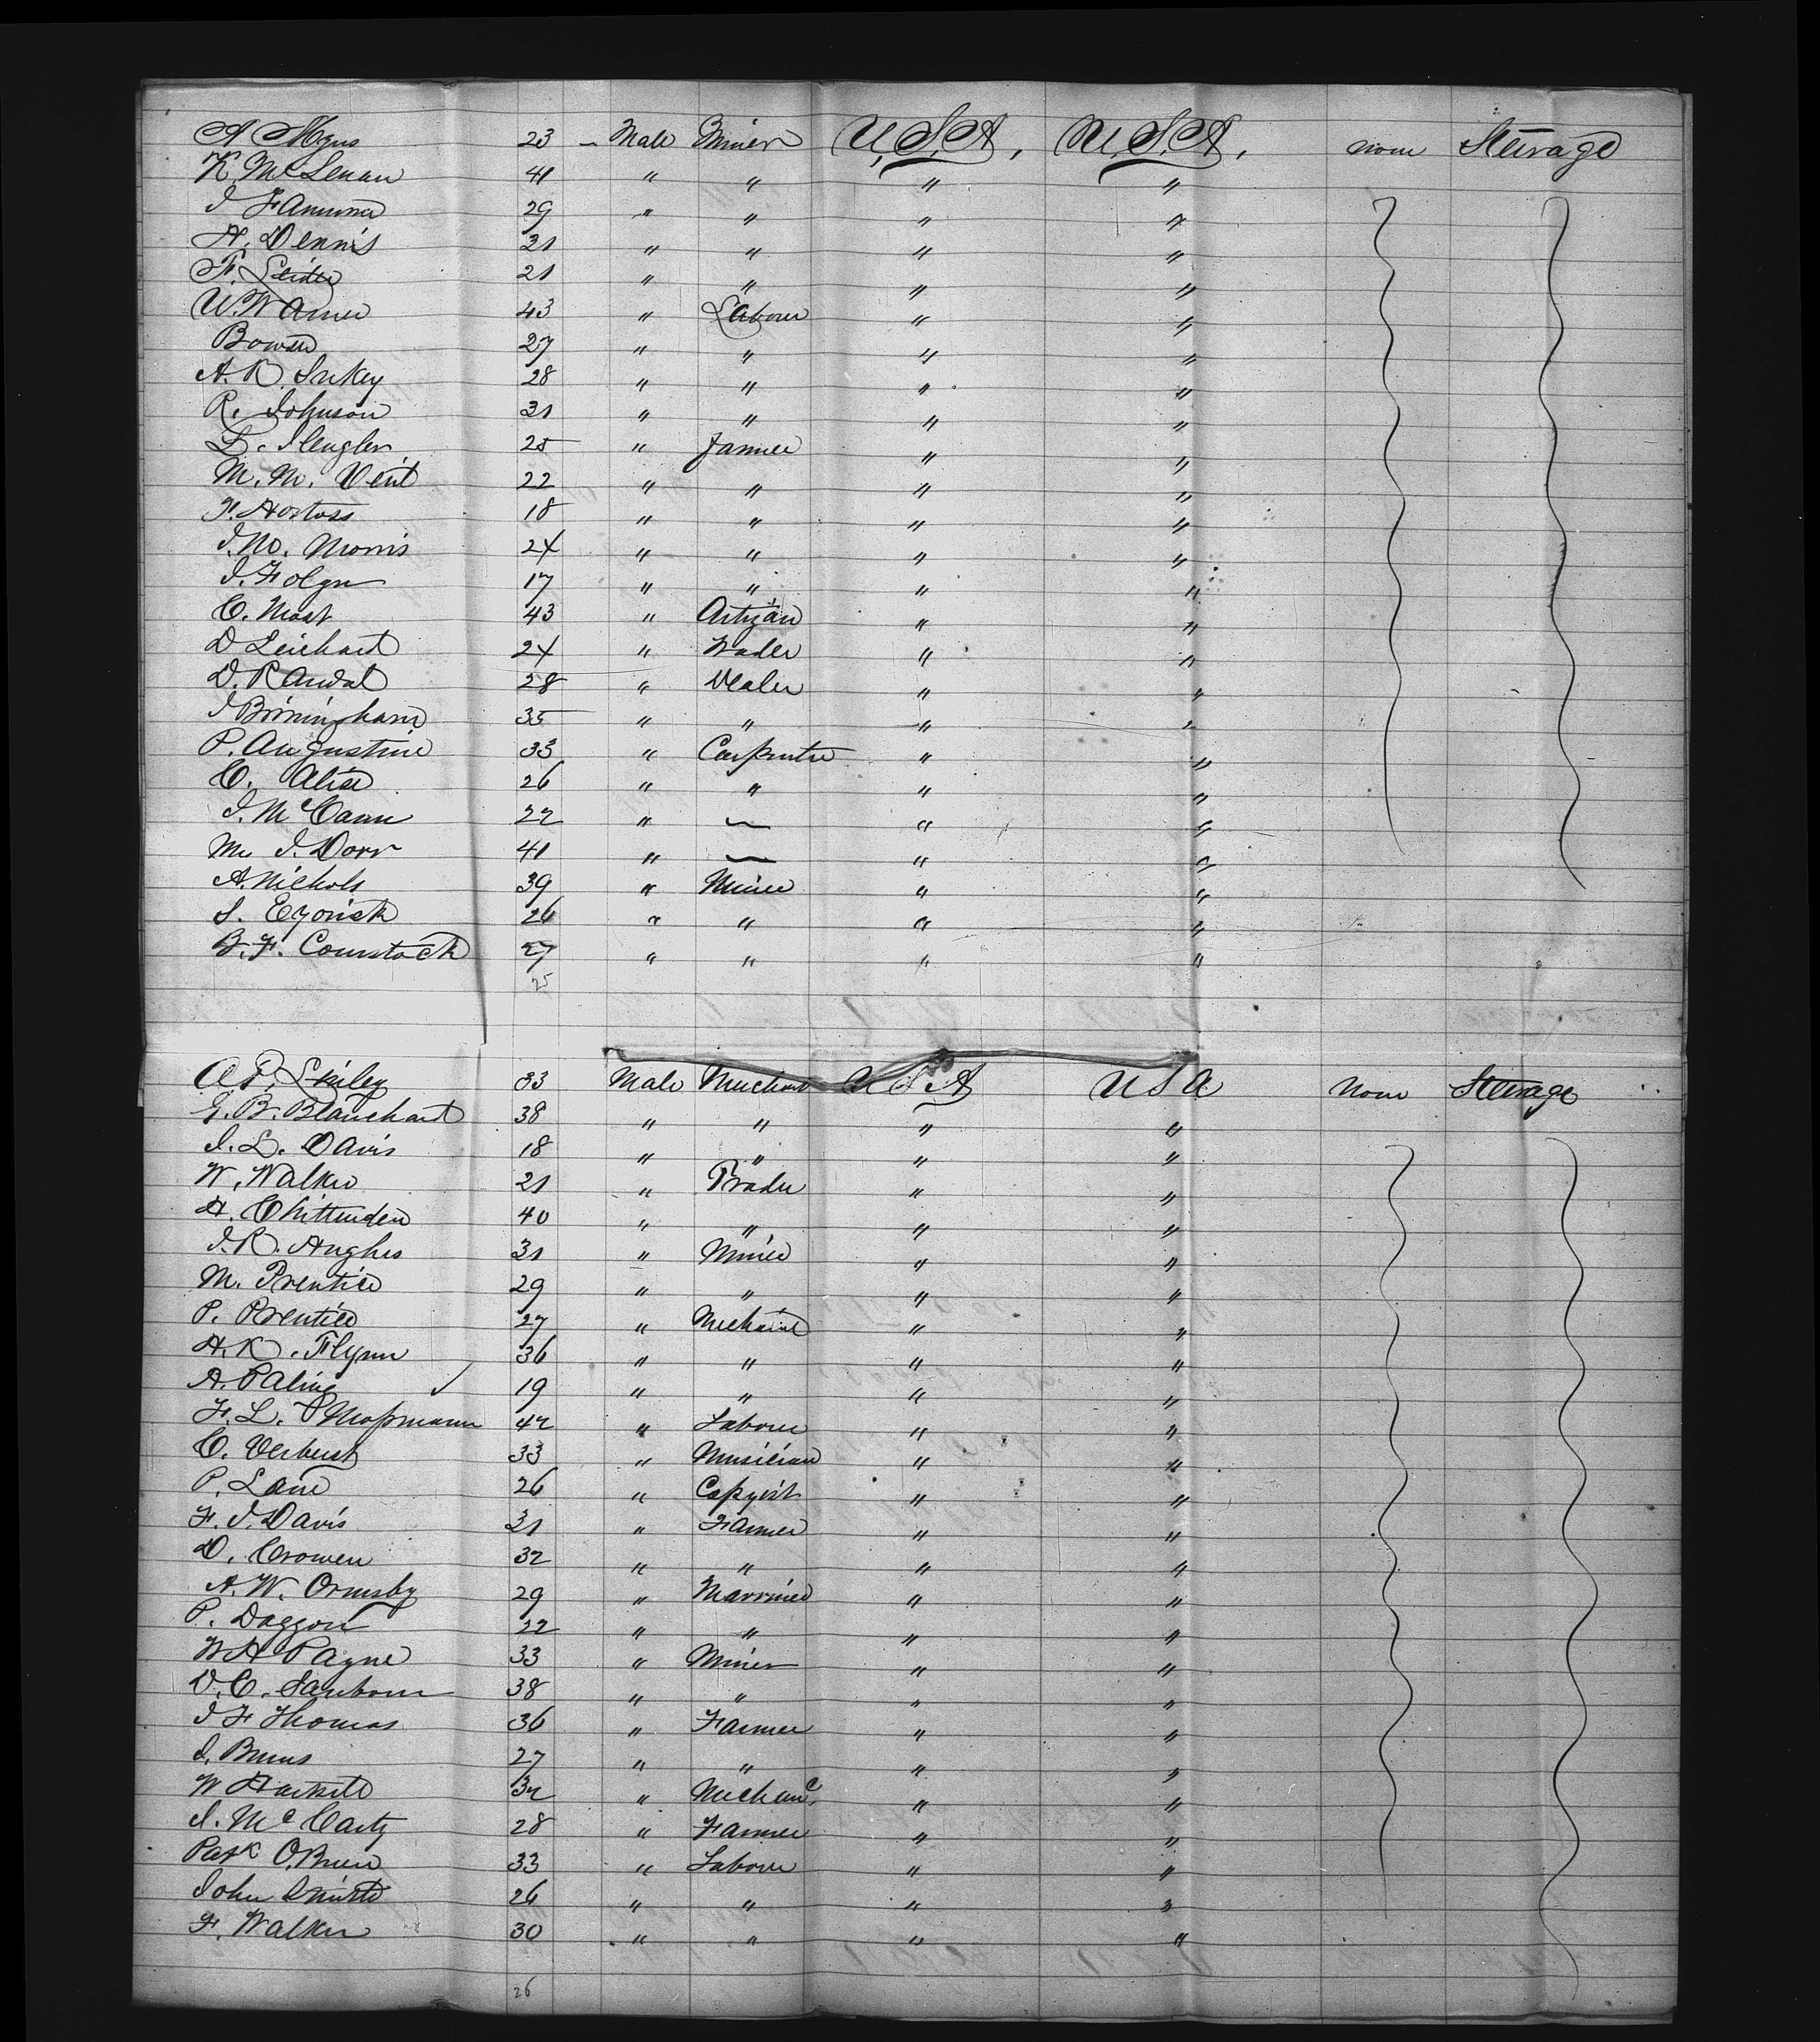 A 23 Male Miner U.S.A, U.S.A, none Steerage
K. McLenan 41 " " " "
J 29 " " " "
A. Dennis 31 " " " "
F. 21 " " " "
W. Warner 43 " Laborer " "
Bowser 27 " " " "
A. R. 28 " " " "
R. Johnson 31 " " " "
L. 25 " Farmer " "
M. M. Vent 22 " " " "
F. 18 " " " "
J. M. Morris 24 " " " "
J. 17 " " " "
C. Mast 43 " Artizan " "
D Leinhart 24 " Trader " "
D. Randal 28 " Dealer " "
J Birmingham 35 " " " "
P. Augustine 33 " Carpenter " "
C. Alise 26 " " " "
J. McCann 22 " — " "
J. Dorr 41 " — " "
A. Nichols 39 " Miner " "
S. 26 " " " "
B. F. Comstock 27 " " " "
25
A P. 33 Male Merchant U S A U S A none Steerage
G. B. Blanchart 38 " " " "
J. L. Davis 18 " " " "
W. Walker 21 " Trader " "
A. Chittenden 40 " " " "
J. R. Hughes 31 " Miner " "
M. Prentice 29 " " " "
P. Prentice 27 " Mechanic " "
A. K. Flynn 36 " " " "
A. Paline ✓ 19 " " " "
F. L. Mossmann 42 " Laborer " "
C. Verbust 33 " Musician " "
P. Lane 26 " Copyist " "
F. J. Davis 31 " Farmer " "
D. Crowen 32 " " " "
A. W. Ormsby 29 " Marrined " "
P. Daggon 22 " " " "
W H Payne 33 " Miner " "
D. C. Sanborn 38 " " " "
J F Thomas 36 " Farmer " "
J. Burns 27 " " " "
W Hackett 32 " Mechanc " "
J. McCarty 28 " Farmer " "
Patk O.Brien 33 " Laborer " "
John 26 " " " "
F. Walker 30 " " " "
26